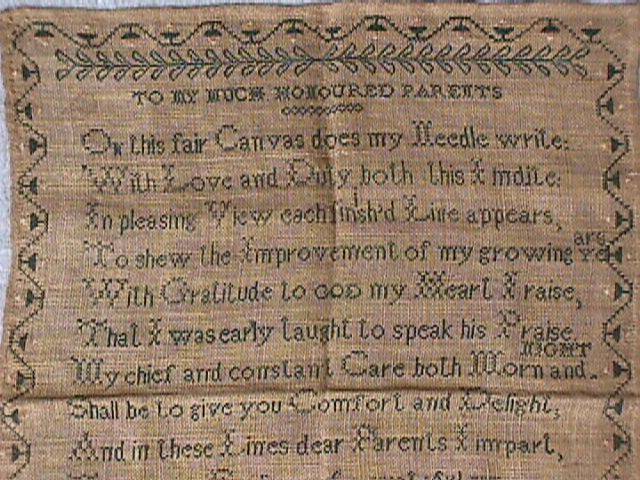 TO MY MUCH HONOURED PARENTS
On this fair Canvas does my Needle write:
With Love and Duty both this I indite:
In pleasing View each finish'd Line appears,
To shew the Improvement of my growing Years
With Gratitude to GOD my Heart I raise,
That I was early taught to speak his Praise
My chief and constant Care both Morn and NIGHT
Shall be to give you Comfort and Delight,
And in these Lines dear Parents I impart,